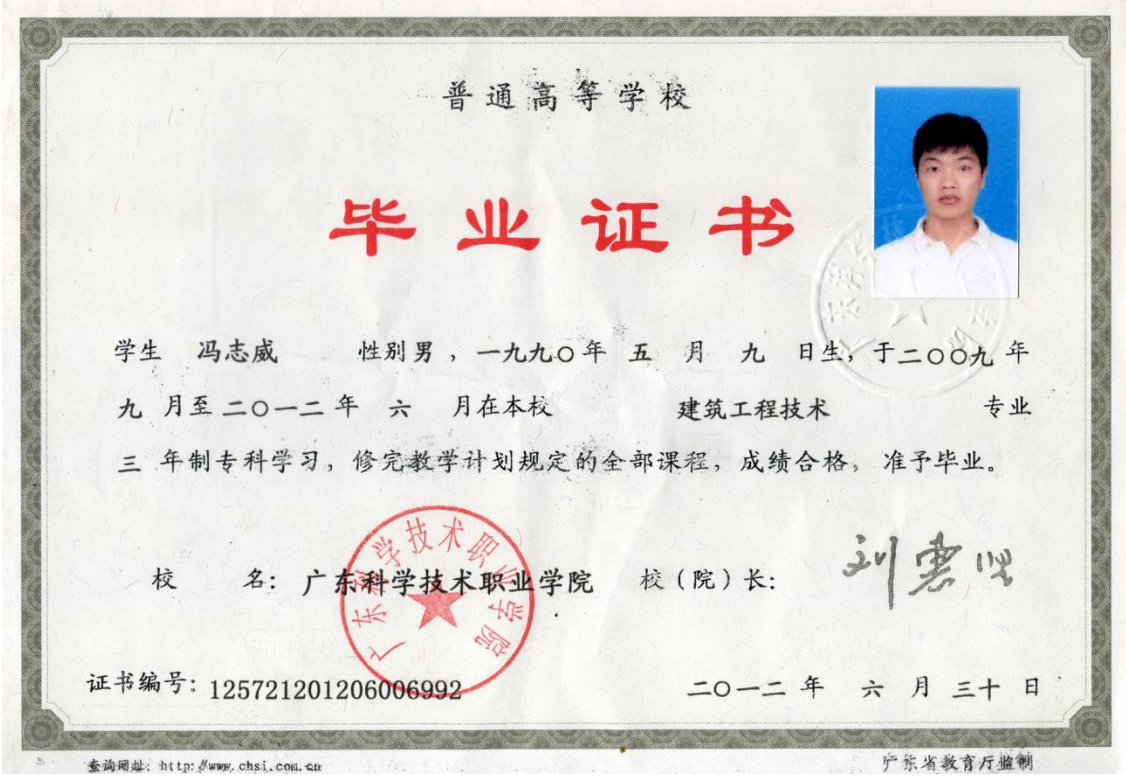 普通高等学校
毕业证书
学生 冯志威 性别男，一九九〇年 五 月 九 日生，于二〇〇九年
九 月至二〇一二年 六 月在本校 建筑工程技术 专业
三 年制专科学习，修完教学计划规定的全部课程，成绩合格，准予毕业。
校 名：广东科学技术职业学院 校（院）长：
广东科学技术职业学院
证书编号：125721201206006992 二〇一二年 六 月 三十 日
查询网址：http://www.chsi.com.cn 广东省教育厅监制